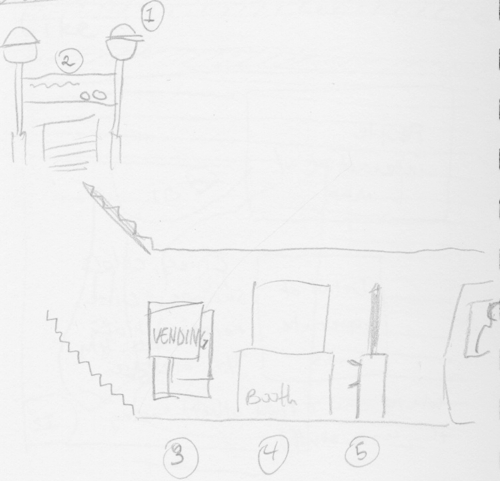 1
2
VENDING
Booth
3
4
5